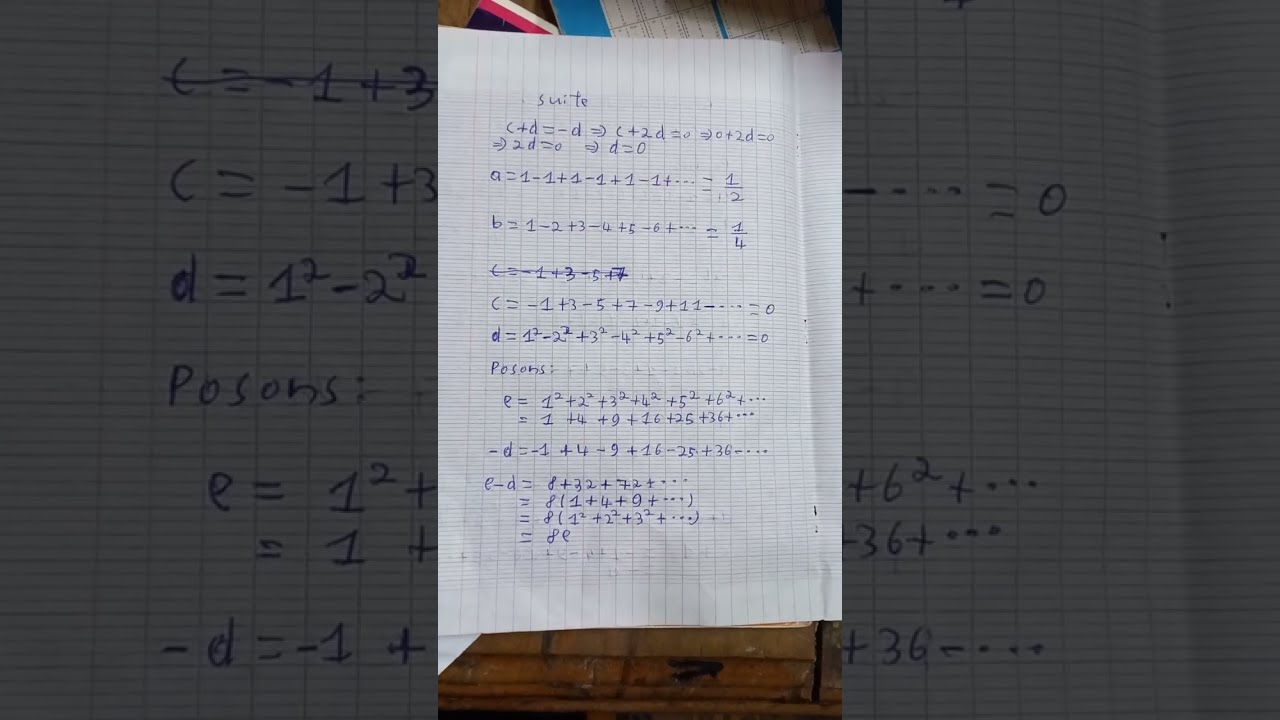 suite
c+d=-d ⇒ c+2d=0 ⇒ 0+2d=0
⇒ 2d=0 ⇒ d=0
a = 1-1+1-1+1-1+... = 1/2
b = 1-2+3-4+5-6+... = 1/4
c = -1+3-5+7
c = -1+3-5+7-9+11-... = 0
d = 1²-2²+3²-4²+5²-6²+... = 0
Posons:
e = 1²+2²+3²+4²+5²+6²+...
= 1+4+9+16+25+36+...
-d = -1+4-9+16-25+36-...
e-d = 8+32+72+...
= 8(1+4+9+...)
= 8(1²+2²+3²+...)
= 8e